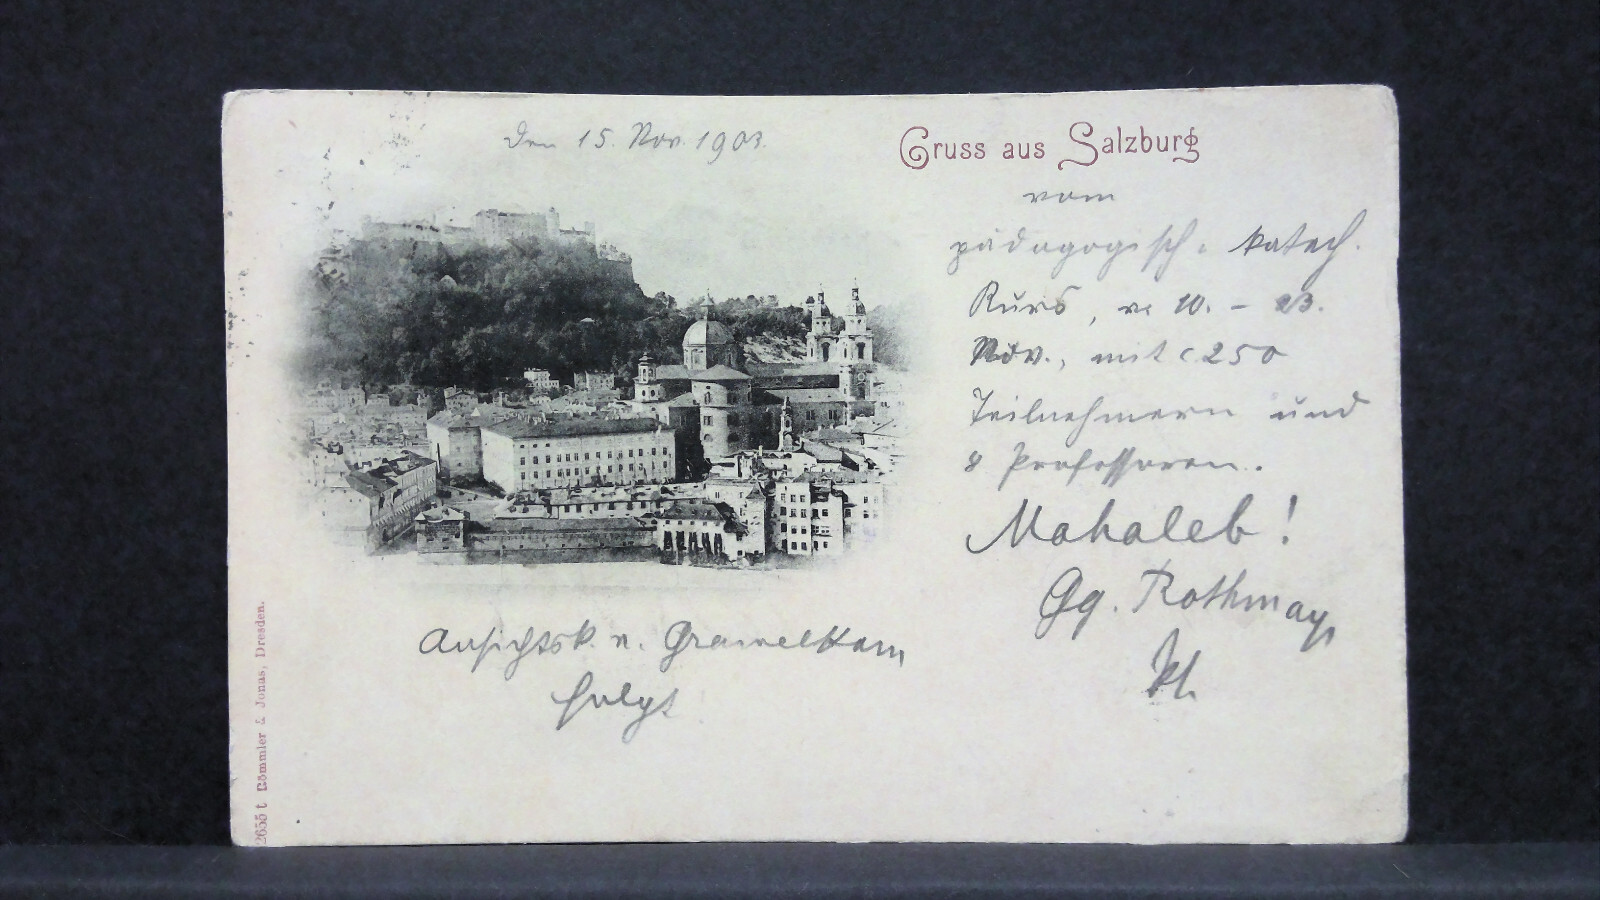 Den 15. Nov. 1903.
Gruss aus Salzburg
vom
pädagogisch-katech.
Kurs, v. 10. – 23.
Nov., mit c 250
Teilnehmern und
8 Professoren.
Mahaleb!
Gg. Rothmayr
Ansichtsk. v.
folgt
2655 t Römmler & Jonas, Dresden.